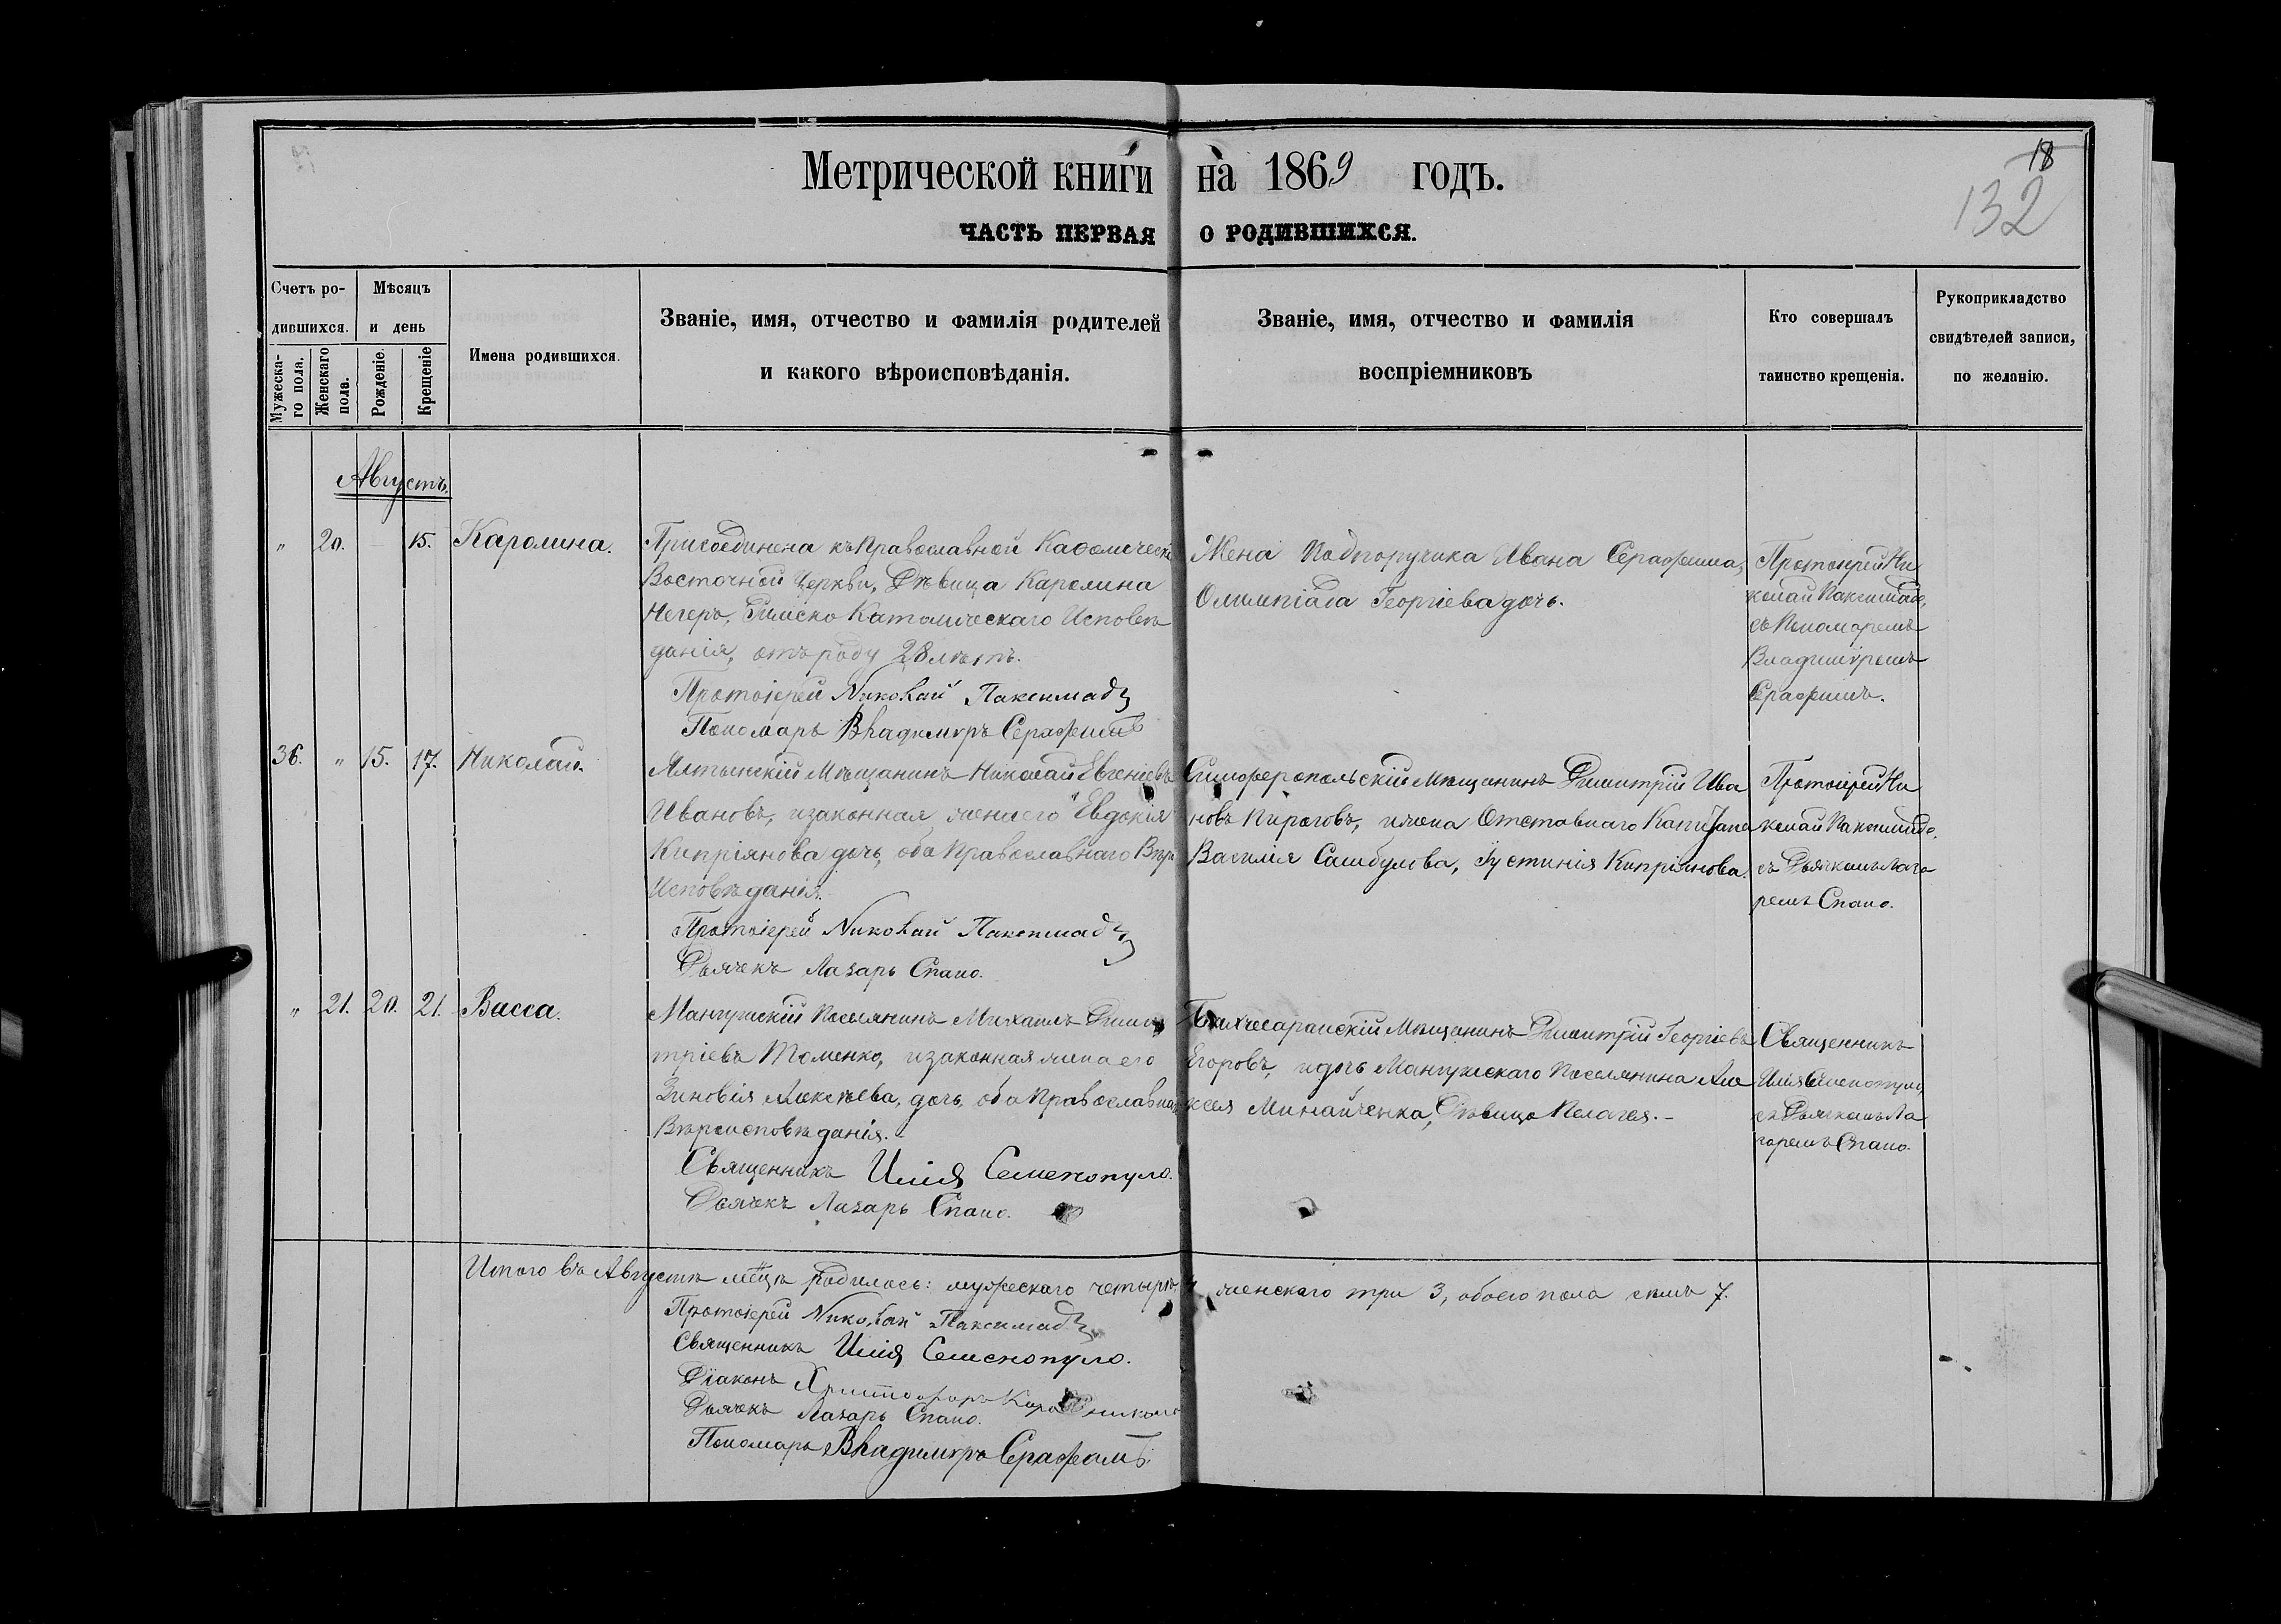 18
132
Метрической книги на 1869 годъ.
ЧАСТЬ ПЕРВАЯ О РОДИВШИХСЯ.
Счетъ родившихся.
Мужескаго пола.
Женскаго пола.
Мѣсяцъ и день
Рожденіе.
Крещеніе
Имена родившихся.
Званіе, имя, отчество и фамилія родителей
и какого вѣроисповѣданія.
Званіе, имя, отчество и фамилія
воспріемниковъ
Кто совершалъ
таинство крещенія.
Рукоприкладство
свидѣтелей записи,
по желанію.
Августъ.
" 20. — 15. Каролина.
Присоединена къ Православной Каѳолическ
Восточной Церкви, Дѣвица Каролина
Негеръ, Римско Католическаго Исповѣ
данія, отъ роду 28 лѣтъ.
Протоіерей Николай Паксимадъ
Пономарь Владимиръ Серафимъ
Жена Подпоручика Ивана Серафима,
Олимпіада Георгіева дочь.
Протоіерей Ни
колай Паксимадъ,
съ Пономаремъ
Владиміромъ
Серафимъ.
36. " 15. 17. Николай.
Ялтынскій Мѣщанинъ Николай Евгеніевъ
Ивановъ, и законная жена его Евдокія
Кипріянова дочь, оба Православнаго Вѣро
Исповѣданія.
Протоіерей Николай Паксимадъ
Дьячекъ Лазарь Спано.
Симферопольскій Мѣщанинъ Димитрій Ива
новъ Пироговъ, и жена Отставнаго Капитана
Василія Самбулова, Іустинія Кипріянова.
Протоіерей Ни
колай Паксимадъ,
съ Дьячкомъ Лаза
ремъ Спано.
" 21. 20. 21. Васса.
Мангушскій Поселянинъ Михаилъ Дими
тріевъ Томенко, и законная жена его
Зиновія Алексѣева, дочь, оба Православнаго
Вѣроисповѣданія.
Священникъ Илія Семенопуло.
Дьячекъ Лазарь Спано.
Бахчисарайскій Мѣщанинъ Димитрій Георгіевъ
Егоровъ, и дочь Мангушскаго Поселянина Але
ксея Минайченка, Дѣвица Пелагея. -
Священникъ
Илія Семенопуло,
съ Дьячкомъ Ла
заремъ Спано.
Итого въ Августѣ мѣцѣ родилось: мужескаго четыре 4 женскаго три 3, обоего пола семь 7.
Протоіерей Николай Паксимадъ
Священникъ Илія Семенопуло.
Діаконъ Христофоръ
Дьячекъ Лазарь Спано.
Пономарь Владимиръ Серафимъ.